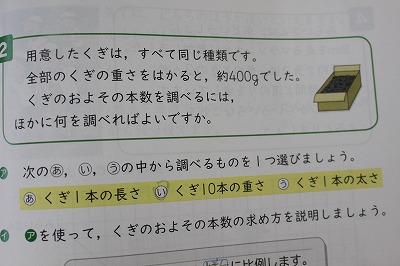 2
用意したくぎは，すべて同じ種類です。
全部のくぎの重さをはかると，約400gでした。
くぎのおよその本数を調べるには，
ほかに何を調べればよいですか。
ア 次のあ，い，うの中から調べるものを1つ選びましょう。
あ くぎ1本の長さ い くぎ10本の重さ う くぎ1本の太さ
イ アを使って，くぎのおよその本数の求め方を説明しましょう。
に比例します。